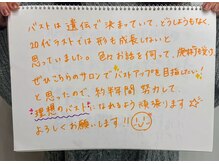 バストは遺伝で決まっていて、どうしようもなく、
20代ラストでは形も成長しないと
思っていました。色々お話を伺って、
ぜひこちらのサロンでバストアップを目指したい!
と思ったので、約半年間 努力して、
理想のバストになれるよう頑張ります☆
よろしくお願いします!!